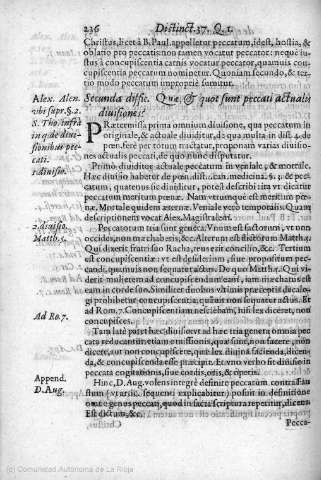 236 Distinct. 37. Q. 1.
Christus, licet à B. Paul. appelletur peccatum, idest, hostia, &
oblatio pro peccatis: non tamen vocatur peccator: neque ius
tus à concupiscentia carnis vocatur peccator, quamuis con
cupiscentia peccatum nominetur. Quoniam secundo, & ter
tio modo peccatum improprie sumitur.
Alex. Alen.
vbi supr. §. 2.
S. Tho. infrà
in q. de diui-
sionibus pec-
cati.
1. diuisio.
Secunda diffic. Quæ, & quot sunt peccati actualis
diuisiones?
PRætermissa prima omnium diuisione, qua peccatum in
originale, & actuale diuiditur, de qua multa in dist.
per totum tractatur, proponam varias diuisio-
nes actualis peccati, de quo nunc disputatur.
Primo diuiditur actuale peccatum in veniale, & mortale.
Hæc diuisio habetur de pœn. dist. cap. medicina. §. & pec-
catum, quatenus sic diuiditur, potest describi ita vt dicatur
peccatum meritum pœnæ. Nam vtrumque est meritum pœ-
næ. Mortale quidem æternæ. Veniale verò temporalis. Quam
descriptionem vocat Alex. Magistralem.
2. diuisio.
Matth. 5.
Peccatorum tria sunt genera. Vnum est factorum, vt non
occides, non mæchaberis, &c. Alterum est dictorum Matth. 5.
Qui dixerit fratri suo Racha, reus erit concilio, &c. Tertium
est concupiscentiæ: vt est desiderium, siue propositum pec-
candi, quamuis non sequatur actus. De quo Matth. 5. Qui vi-
derit mulierem ad concupiscendum eam, iam mæchatus est
eam in corde suo. Sin duobus vltimis præceptis decalo-
gi prohibetur concupiscentia, quamuis non sequatur actus. Et
Ad Ro. 7.
ad Rom. 7. Concupiscentiam nesciebam, nisi lex diceret, non
concupisces.
Tam latè patet hæc diuisio, vt ad hæc tria genera omnia pec
cata reducantur: etiam omissionis, quæ sunt, non facere, non
dicere, aut non concupiscere, quæ lex diuina facienda, dicen-
da, & concupiscenda esse præcipit. Et vno verbo sit diuisio in
peccata cogitationis, siue cordis, oris, & operis.
Append.
D. Aug.
Hinc, D. Aug. volens integrè definire peccatum contra Fau
stum (vt artic. sequenti explicabitur) posuit in definitione
omne genus peccati, quod in sacra scriptura reperitur, dicens,
Est dictum, &c.
Pecca-
(c) Comunidad Autónoma de La Rioja